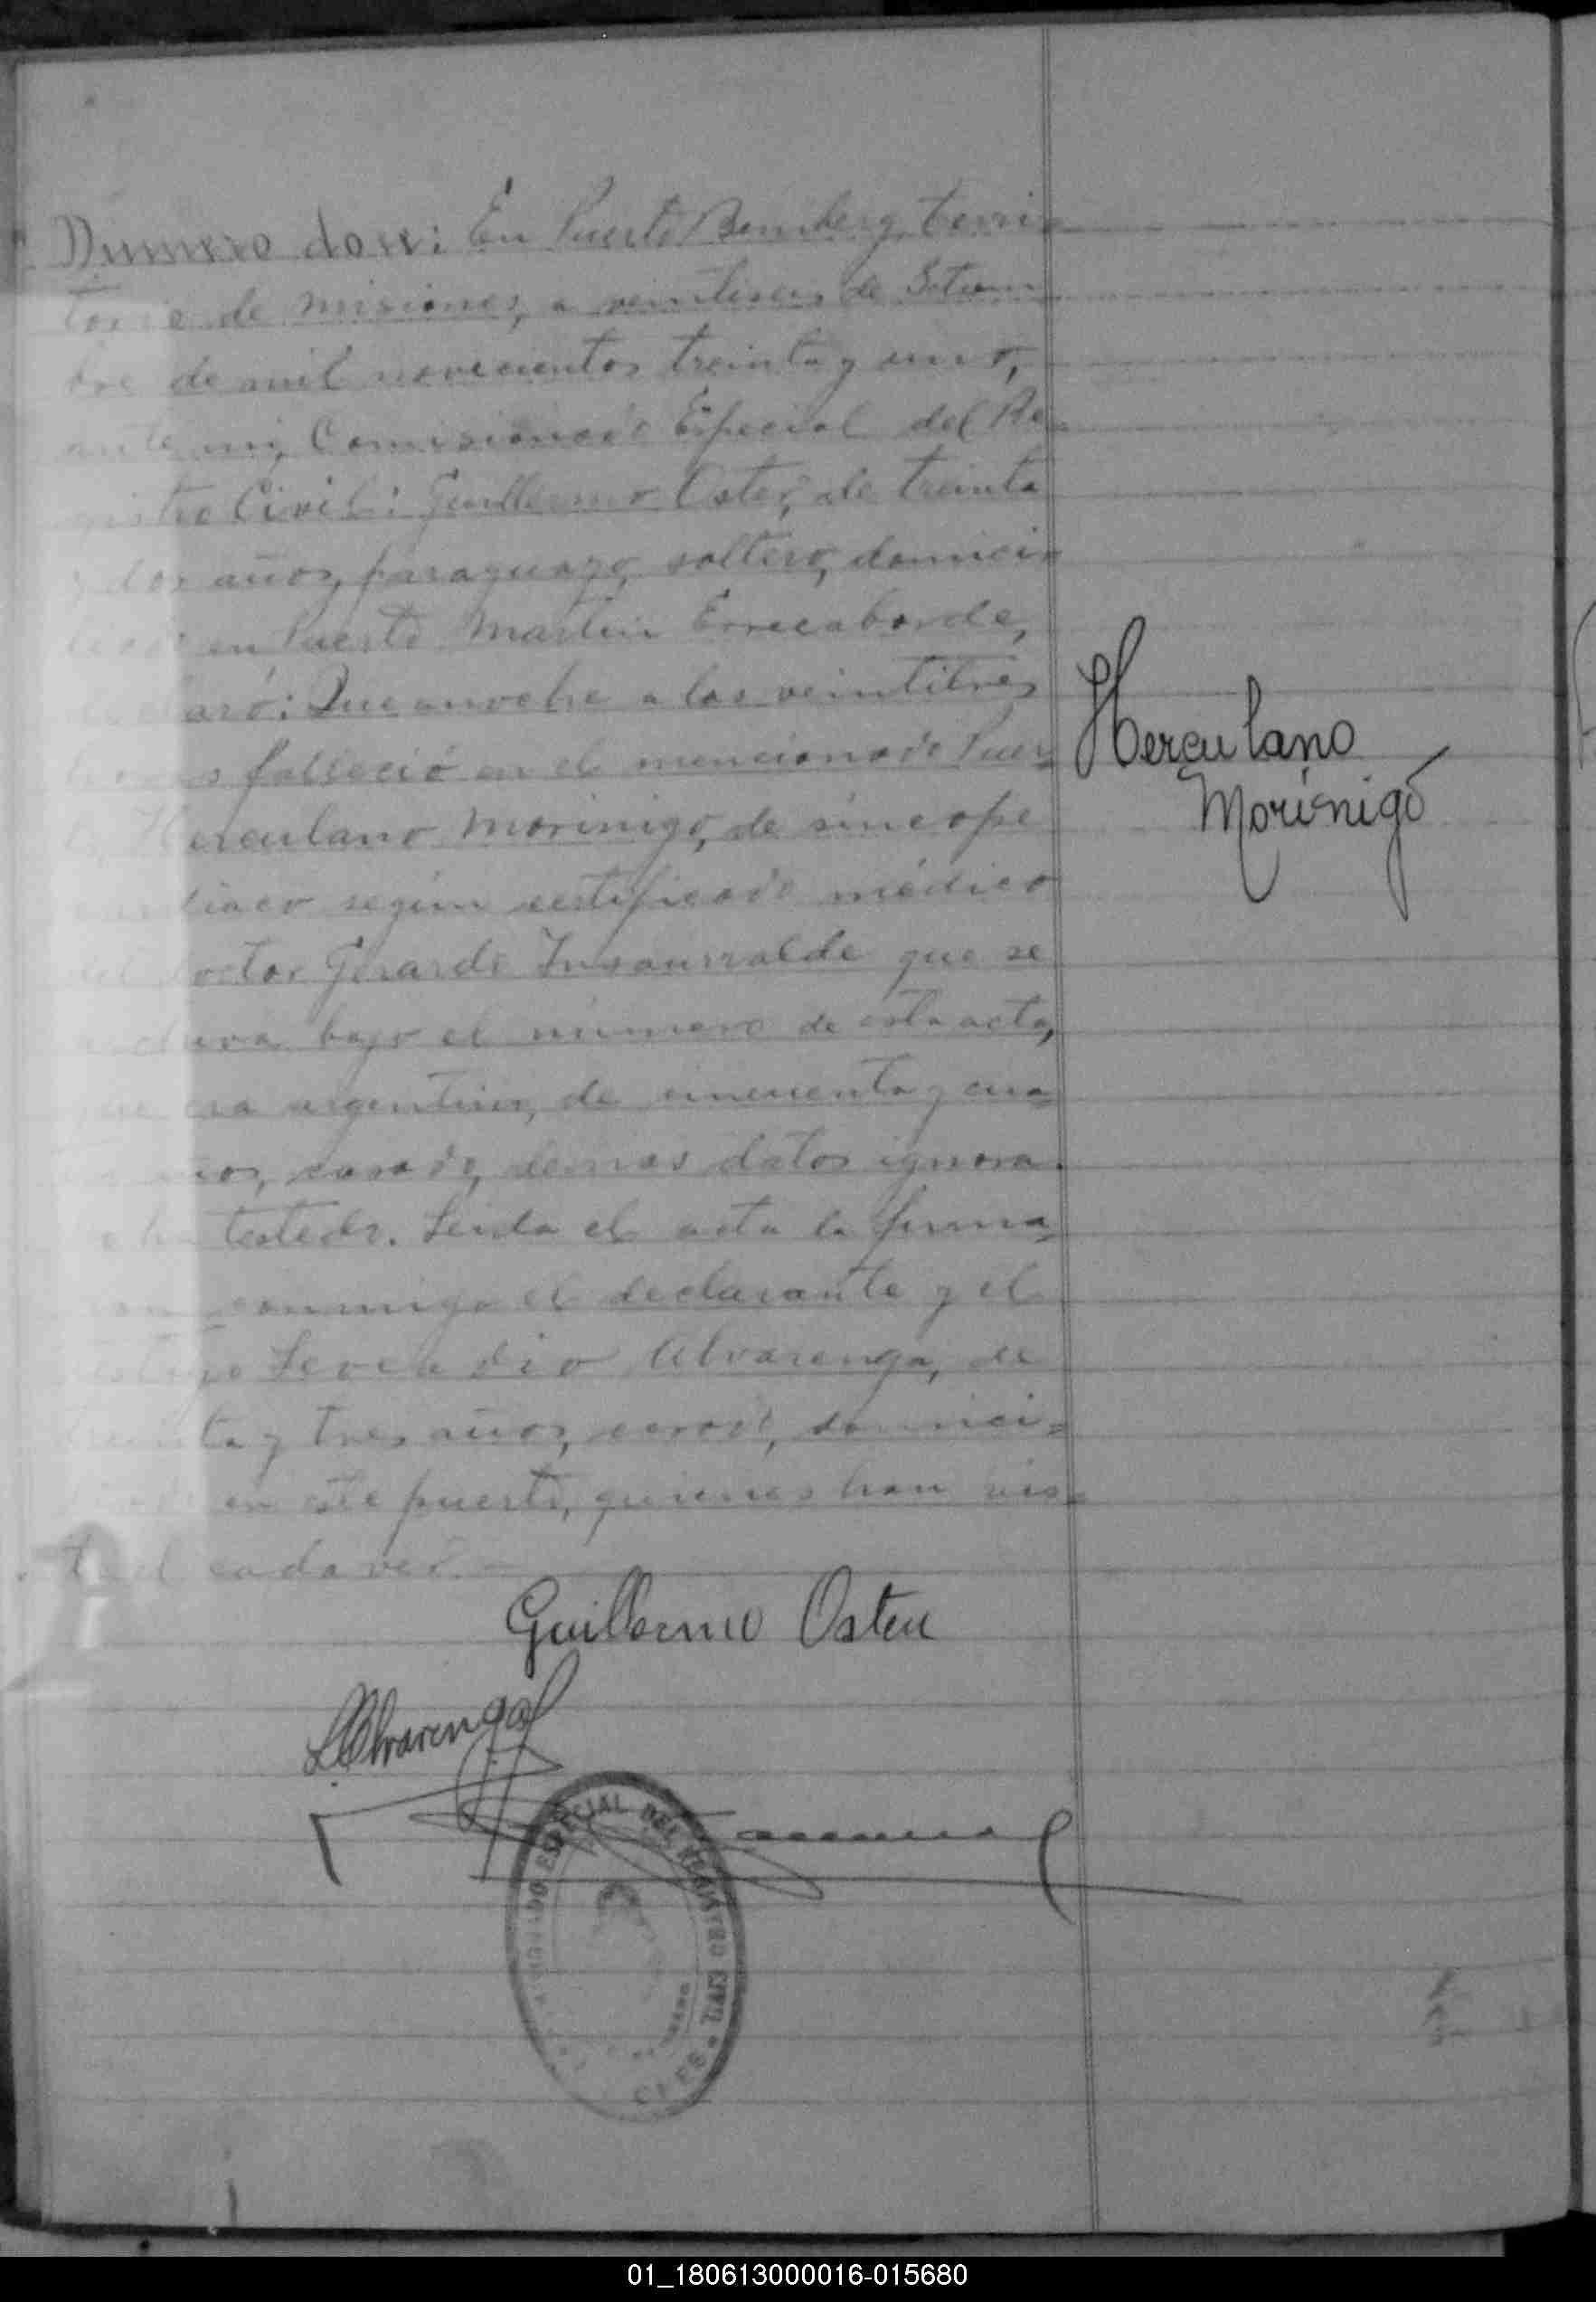 Numero doce: En Puerto Bemberg, terri-
torio de Misiones, a veintiseis de Setiem
bre de mil novecientos treinta y uno,
ante mi, Comisionado Especial del Re-
gistro Civil: Guillermo Oster, de treinta
y dos años, paraguayo, soltero, domici-
liado en Puerto Martin Errecaborde,
declaró: Que anoche a las veintitres
horas falleció en el mencionado Puer-
to, Herculano Morinigo, de sincope
cardiaco según certificado médico
del doctor Gerardo Insaurralde que se
archiva bajo el número de esta acta,
que era argentino, de cincuenta y cua-
años, casado, demas datos ignora.
testedo. Leida el acta la firma-
ron conmigo el declarante y el
testigo Leocadio Alvarenga, de
treinta y tres años, casado, domici-
liado en este puerto, quienes han vis-
to el cadaver.—
Herculano
Morínigo
Guillermo Osten
LAlvarenga
ESPECIAL DEL REGISTRO CIVIL
01_180613000016-015680